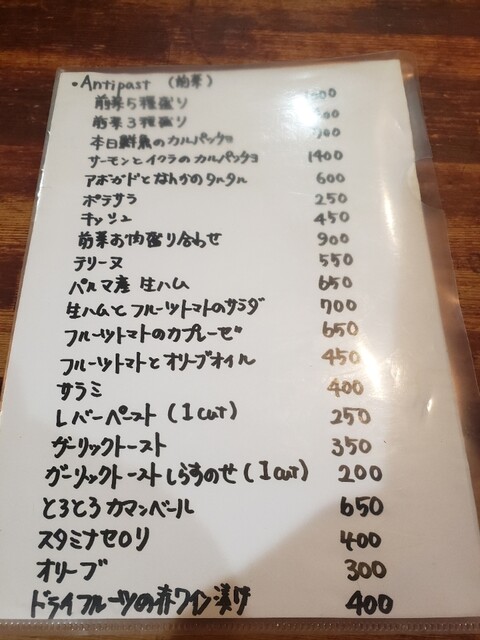 ・Antipast (前菜)
前菜5種盛り
前菜3種盛り
本日鮮魚のカルパッチョ
サーモンとイクラのカルパッチョ 1400
アボガドとなんかのタルタル 600
ポテサラ 250
キッシュ 450
前菜お肉盛り合わせ 900
テリーヌ 550
パルマ産 生ハム 650
生ハムとフルーツトマトのサラダ 700
フルーツトマトのカプレーゼ 650
フルーツトマトとオリーブオイル 450
サラミ 400
レバーペースト (1cut) 250
ガーリックトースト 350
ガーリックトーストしらすのせ (1cut) 200
とろとろカマンベール 650
スタミナセロリ 400
オリーブ 300
ドライフルーツの赤ワイン漬け 400